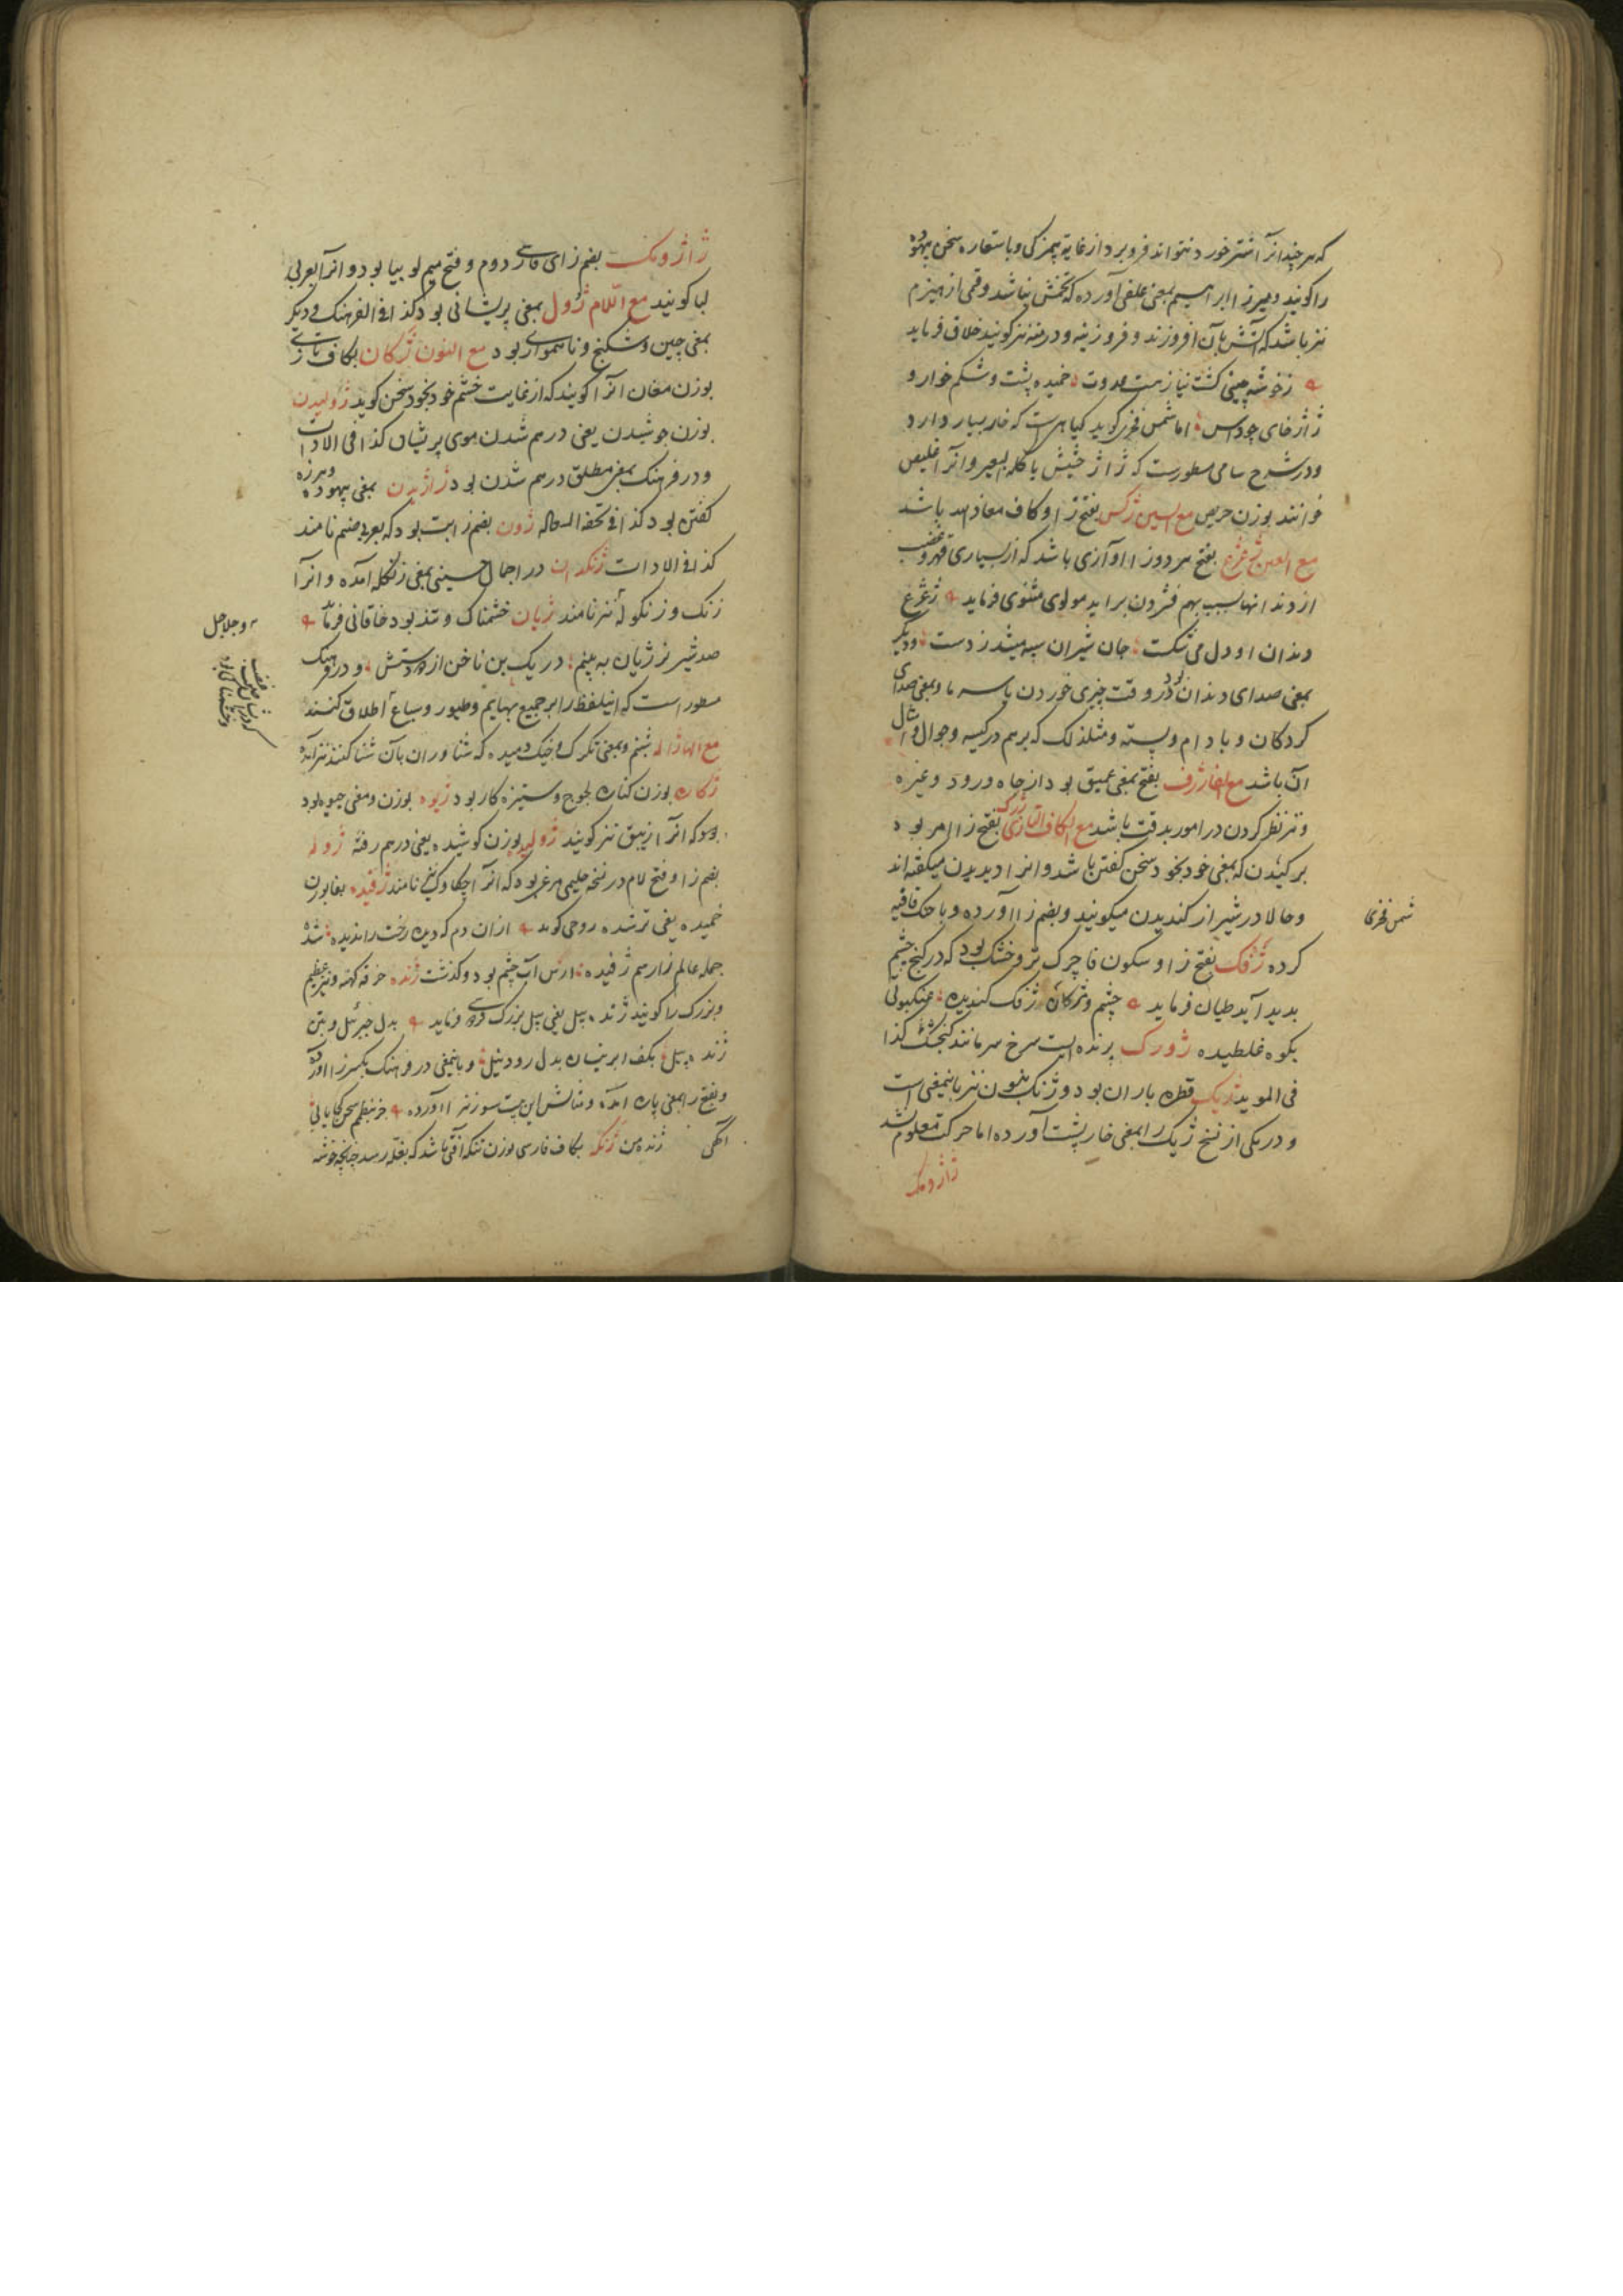 که هر چند انرا اشتر خورد نتواند فرو برد از غایة بیمزکی و باستعاره سخن بیهوده
را کویند و میرزا ابراهیم بمعنی علفی آورده که تخمش نباشد و قمی از هیزم
نیز باشد که آتش بآن افروزند و فروزینه و درمنه نیز کویند خلاق فرماید
ز خوشه چینی کشت نیاز خمیده پشت و شکم خوار و
ژاژ خای چو داس اما شمس فخری کوید کیاهی است که خار بسیار دارد
و در شرح سامی مسطورست که ژاژ حشیش یاکله البعیر و انرا
خوانند بوزن حریص مع السین ژکس بفتح زا و کاف معاذ الله باشد
مع الغین ژغژغ بفتح هر دو زا اوازی باشد که از بسیاری قهر و غضب
از دندانها بسبب بهم فشردن براید مولوی مثنوی فرماید ژغژغ
دندان او دل می شکست جان شیران سیه میشد ز دست و دیکر
بمعنی صدای دندان بود در وقت چیزی خوردن یا سرما و بمعنی صدای
کردکان و بادام و پسته و مثل ذلک که برهم در کیسه و جوال و امثال
آن باشد مع الفا ژرف بفتح بمعنی عمیق بود از چاه و رود و غیره
و نیز نظر کردن در امور بدقت باشد مع الکاف التازی ژک بفتح زا امر بود
بر کیدن که بمعنی خود بخود سخن کفتن باشد و انرا دیدیدن میکفته اند
و حالا در شیراز کندیدن میکویند و بضم زا آورده و با حک قافیه
شمس فخری
کرده ژفک بفتح زا و سکون فا چرک تر و خشک بود که در کنج چشم
بدید آید طیان فرماید چشم و مژکان ژفک کندیده عنکبوتی
بکوه غلطیده ژورک پرنده ایست سرخ سر مانند کنجشک کذا
فی المويد ژیک قطره باران بود و ژنک بنون نیز باینمعنی است
و در یکی از نسخ ژیک را بمعنی خارپشت آورده اما حرکت معلوم نشد
ژاژومک
ژاژومک بضم زای فارسی دوم و فتح میم لوبیا بود و انرا بعربی
لبا کویند مع اللام ژول بمعنی پریشانی بود کذا فی الفرهنک و دیکر
بمعنی چین و شکنج و ناهمواری بود مع النون ژکان بکاف تازی
بوزن مغان انرا کویند که از غایت خشم خود بخود سخن کوید ژولیدن
بوزن جوشیدن یعنی درهم شدن موی پریشان کذا فی الادات
و در فرهنک بمعنی مطلق درهم شدن بود ژاژیدن بمعنی بیهوده و هرزه
کفتن بود کذا فی تحفه ژون بضم زا بت بود که بعربی صنم نامند
کذا فی الادات ژنکدان در اجمال حسینی بمعنی زنکله آمده و انرا
زنک و زنکوله نیز نامند ژیان خشمناک و تند بود خاقانی فرماید
و جلاجل
صد شیر نر ژیان به بینم در یک بن ناخن از دو دستش و در فرهنک
مسطور است که اینلفظ را بر جمیع بهایم و طیور و سباع اطلاق کنند
مع الها ژاله شبنم و بمعنی تکرک و خیک دمیده که شناوران بآن شنا کنند نیز آمده
ژکاره بوزن کناره لجوج و ستیزه کار بود ژیوه بوزن و معنی جیوه بود
بود که انرا زیبق نیز کویند ژولیده بوزن کوشیده یعنی درهم رفته ژوله
بضم زا و فتح لام در نسخه حلیمی مرغی بود که انرا چکاوک نیز نامند ژفیده بفا بوزن
خمیده یعنی تر شده روحی کوید از ان دم که دیده رخت را ندیده شد
جمله عالم زارسم ژفیده ارس آب چشم بود و کذشت ژنده خرقه کهنه و نیز عظیم
و بزرک را کویند ژنده پیل یعنی پیل بزرک فردوسی فرماید بدل جبرئیل و بتن
ژنده پیل بکف ابر بهمن بدل رود نیل و باینمعنی در فرهنک بکسر زا آورده
و بفتح زا بمعنی پاره آمده و مثالش این بیت سوزنی را آورده جز بنظم سخن کجا یابی
آکهی ژنده من ژنکه بکاف فارسی بوزن تنکه آفتی باشد که بغله رسد چنانچه خوشه